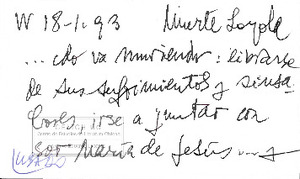 W 18-1-93 Muerte Loyola
...cdo va muriendo: librarse
de sus sufrimientos y sinsa-
bores irse a juntar con
Sor María de Jesús...